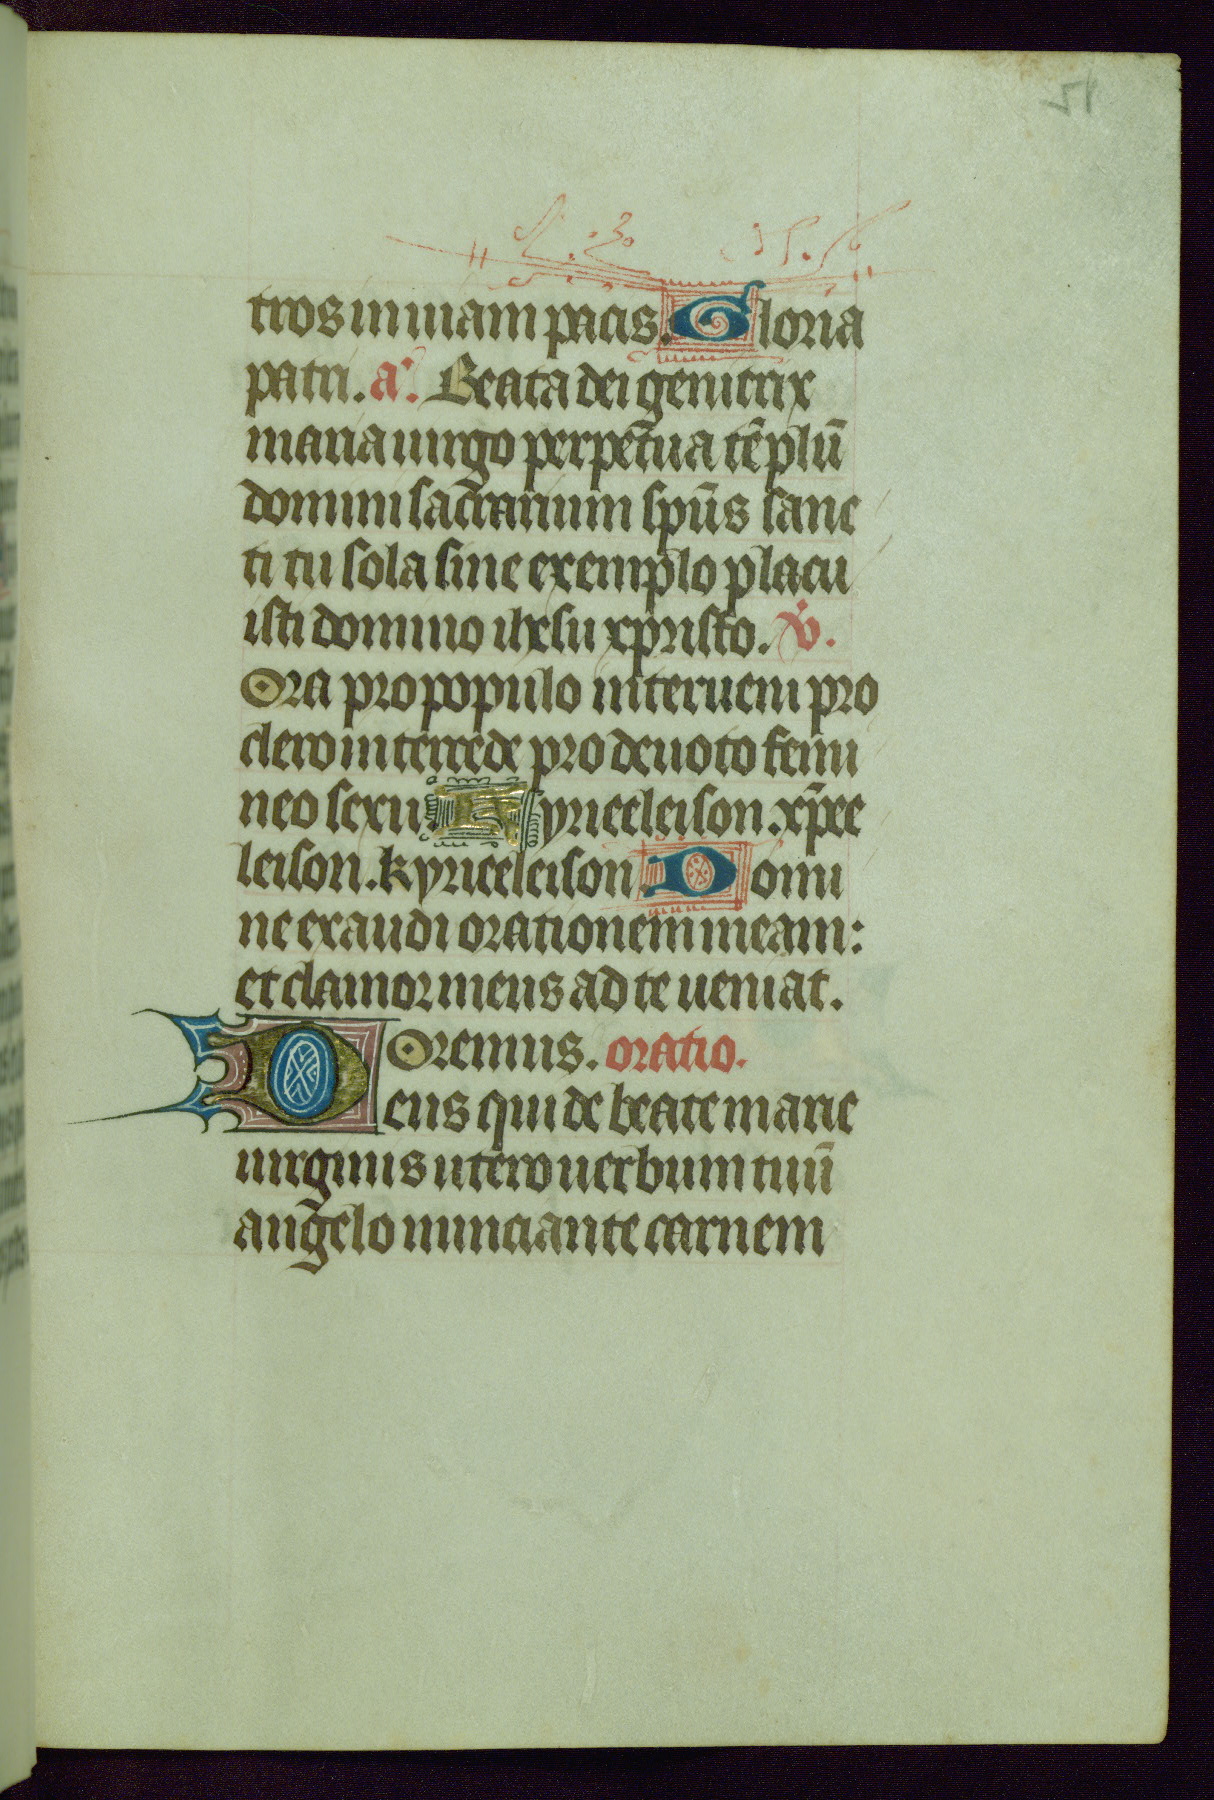 51
tros in uiam pacis. Gloria
patri. a. Beata dei genitrix
maria uirgo perpetua tēplū
domini sacrarium spūs sanc
ti tu sola sine exemplo placu
isti domino ihesu xpristo. V.
Ora pro populo interueni pro
clero intercede pro deuoto femi
neo sexu. Kyrieeleison. xp̄ee
leison. kyrieeleison. Domi
ne exaudi orationem meam:
et clamor meus ad te ueniat.
Oremus. oratio.
Deus qui de beate marie
uirginis utero uerbum tuū
angelo nunciante carnem